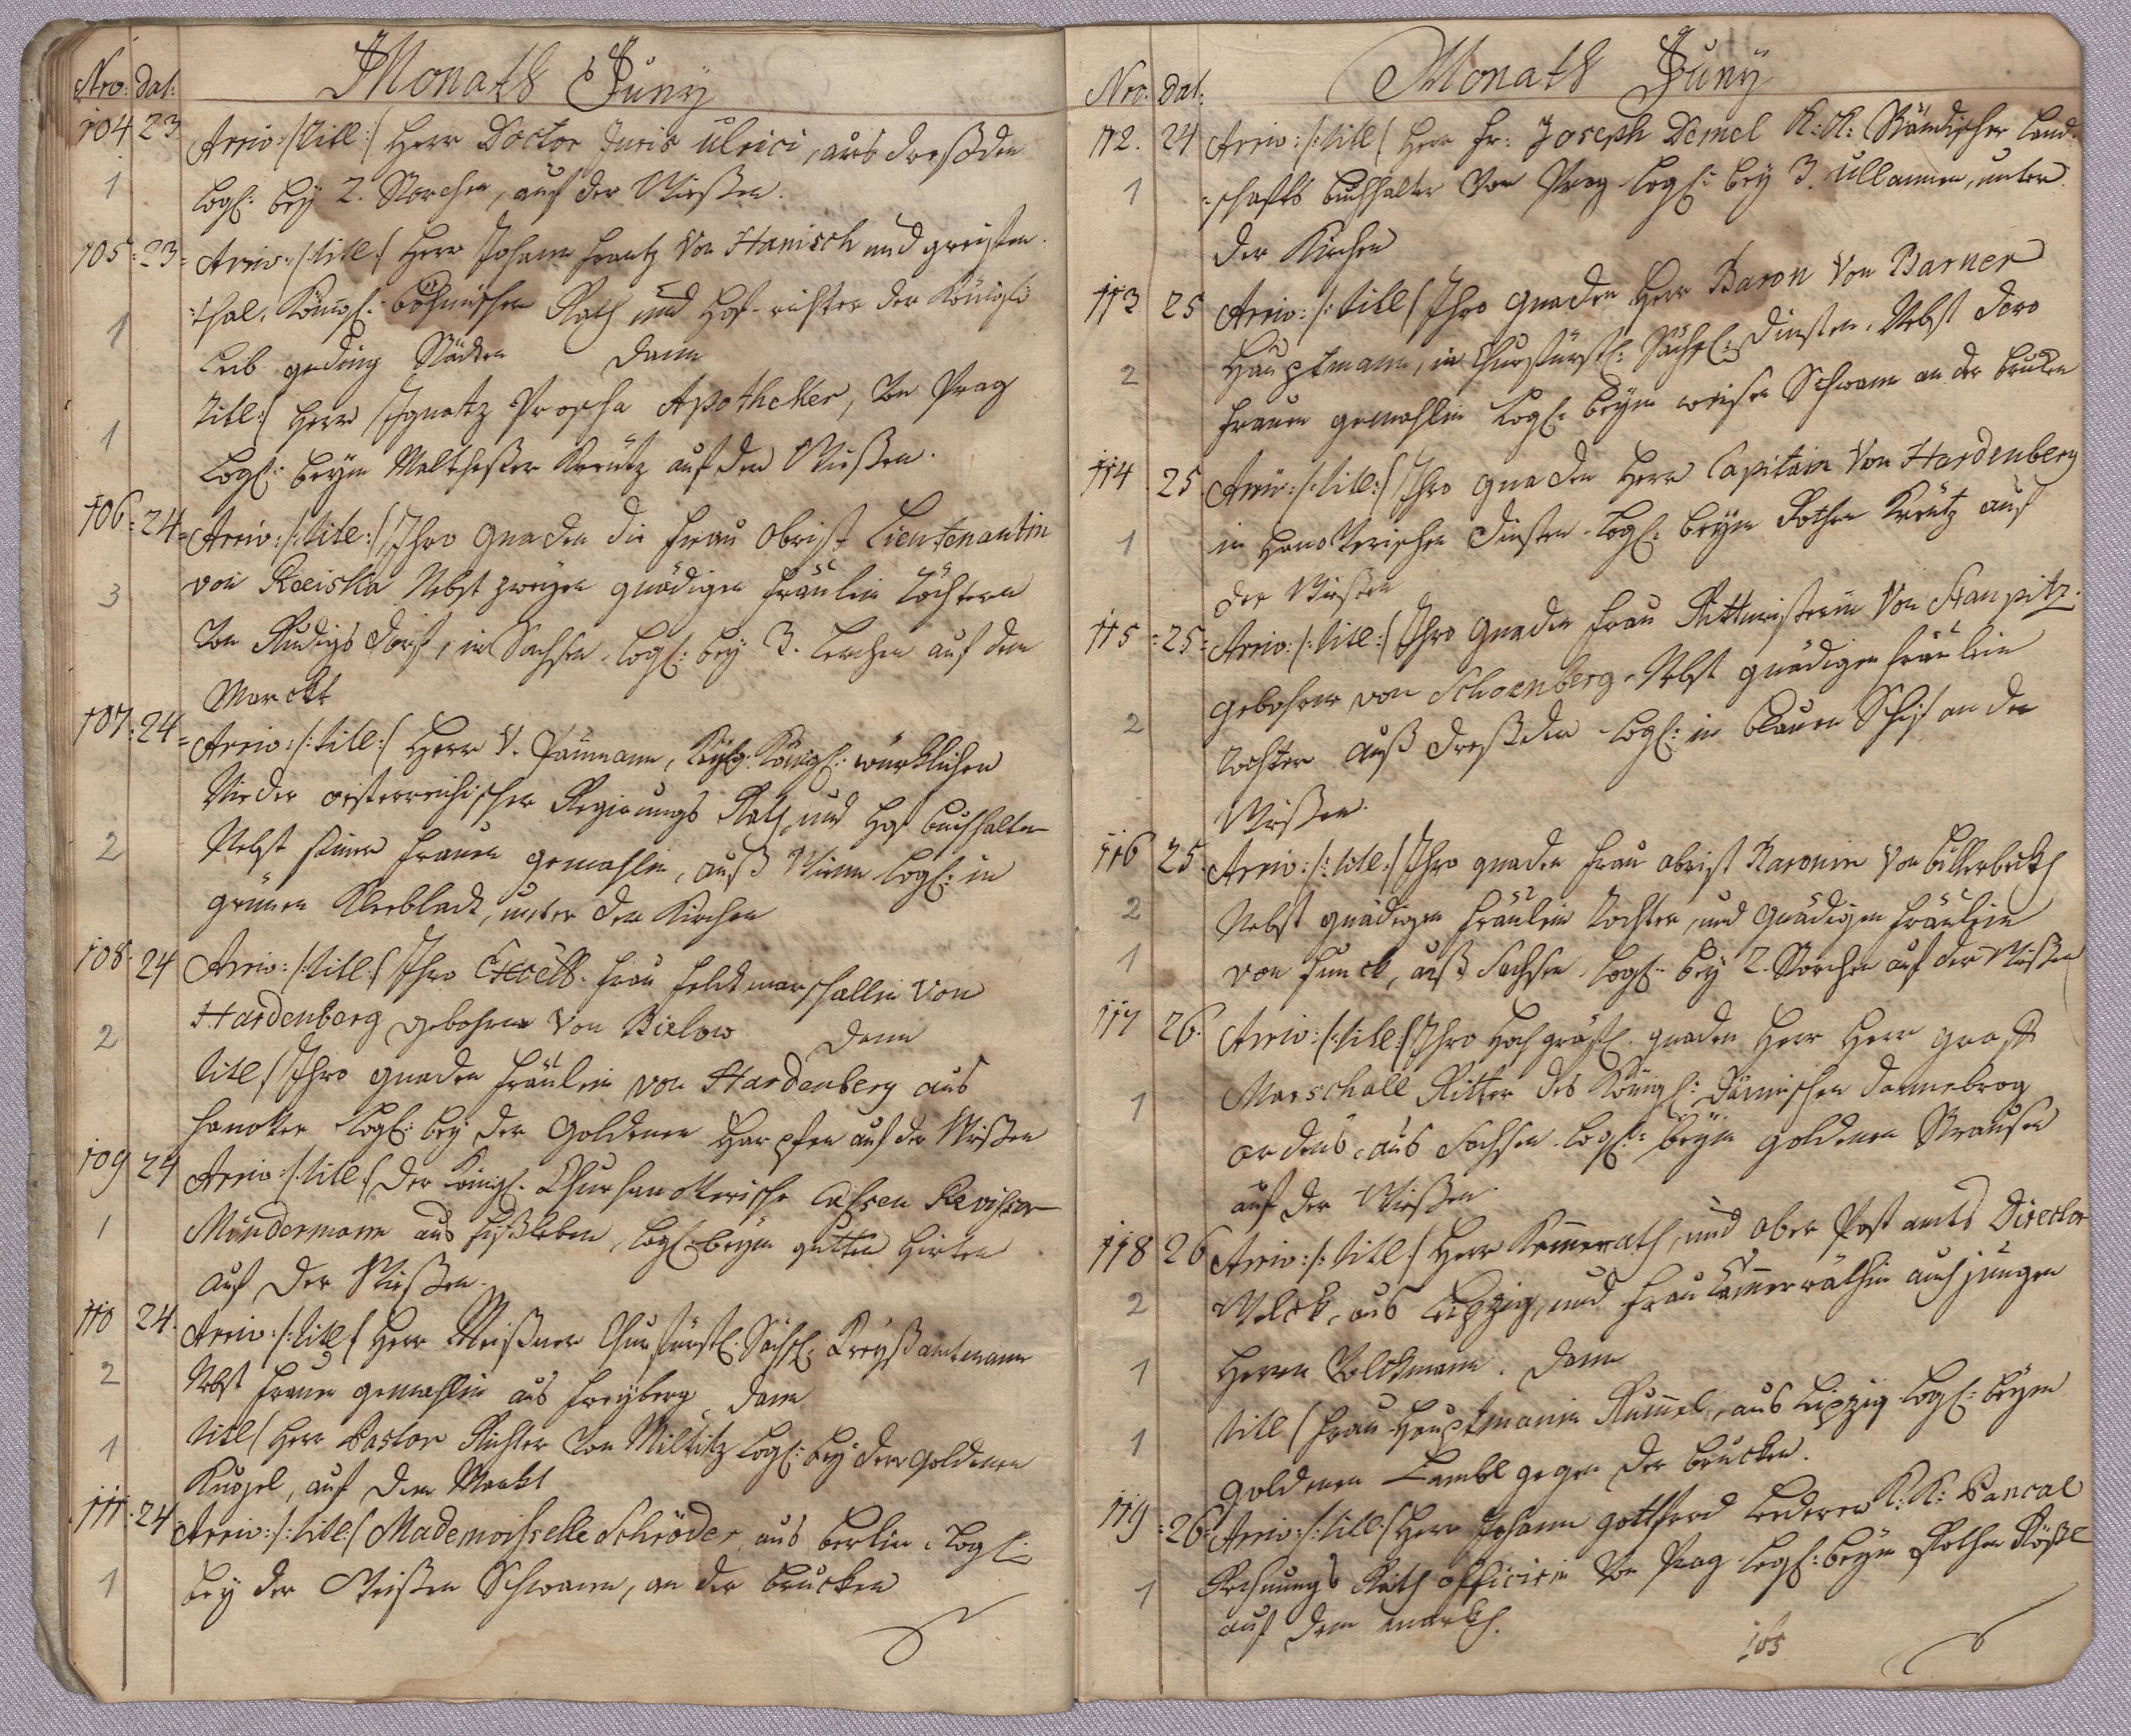 Nro: dat: Monath Juny
104 23 Arriv: /:titl:/ Herr Doctor Juris Ulrici, aus Dreßden
1 Logh: bey 2. Storchen, auf der Wießen.
105: 23: Arriv: /:titl:/ Herr Johann Frantz Von Hanisch und greisten-
1 :thal, Königl: böhmischer Rath und Hof-richter der Königl:
Leib geding Städten Dann
1 titl:/ Herr Ignatz Propha Apotheker, Von Prag
Logh: beym Malthesser Kreutz auf der Wießen.
106: 24: Arriv: /:titl:/ Ihro Gnaden die Frau Obrist Lieutenantin
3 von Nebst zweyen gnädigen Fräulein Töchtern
Von Rudigsdorf, in Sachsen, Logh: bey 3. Lerchen auf dem
Marckt
107: 24: Arriv: /:titl:/ Herr V. Paumann, Kayl: Königl: würcklichen
Nieder oesterreichischer Regierungs Rath, und Hof buchhalter
2 Nebst seiner Frauen gemahlin, auß Wienn Logh: in
grünen Kleebladt, unter der Kirchen
108: 24 Arriv: /:titl:/ Ihro Excell: Frau Feldtmarschallin Von
2 Hardenberg gebohrne Von Bielow Dann
titl:/ Ihro gnaden Fräulein von Hardenberg aus
Hanover Logh: bey der Goldenen Harpfen auf der Wießen
109 24 Arriv: /:titl:/ der Königl: Churhanoverische Cassen Revisor
1 Mündermann aus Logh: beym gutten Hirten
auf der Wießen.
110 24. Arriv: /:titl:/ Herr Meißner Churfürstl: Sächs: Kreyßamtmann
2 Nebst Frauen gemahlin aus Freyberg Dann
1 titl:/ Herr Pastor Richter Von Miltitz Logh: bey der Goldenen
Kugel, auf dem Markt
111: 24 Arriv: /:titl:/ Mademoisselle Schröder, aus Berlin, Logh:
1 bey der Weißen Schwann, an der Brucken
Nro: dat: Monath Juny
112. 24 Arriv: /:titl:/ Herr Fr: Joseph Demel K: K: Ständischer Land-
1 :schafts buchhalter Von Prag Logh: bey 3. Ullannen, unter
der Kirchen
113 25 Arriv: /:titl:/ Ihro Gnaden Herr Baron Von Barner
2 Hauptmann, in Churfürstl: Sächs: Diensten, Nebst dero
Frauen gemahlin Logh: beym weisen Schwann an der brucken
114 25. Arriv: /:titl:/ Ihro Gnaden Herr Capitain Von Hardenberg
1 in Hanoverischen Diensten Logh: beym Rothen Kreutz auf
der Wießen
115: 25: Arriv: /:titl:/ Ihro Gnaden Frau Rittmeisterin Von Staupitz
gebohrne von Schoenberg, Nebst gnädigen Fräulein
2 Tochter auß Dreßden Logh: in blauen Schif an der
Wießen.
116 25. Arriv: /:titl:/ Ihro gnaden Frau Obrist Baronin Von Billerbeckh
2 Nebst gnädigen Fräulein Tochter, und Gnädigen Fräulein
1 von Funck, auß Sachsen Logh: bey 2. Storchen auf der Wießen
117 26. Arriv: /:titl:/ Ihro Hochgräfl: gnaden Herr Herr graff
1 Marschall Ritter des Königl: Dännischen dannebrog
ordens, aus Sachsen Logh: beym goldenen Straußen
auf der Wießen.
118 26 Arriv: /:titl:/ Herr Kammerath, und Ober Post amts Director
2 Welck, aus Leipzig, und Frau Kammerräthin auch jungen
1 Herrn Volckmann. Dann
1 titl:/ Frau Hauptmanin Rummel, aus Leipzig Logh: beym
goldenen Lambl gegen der brucken.
119: 26: Arriv: /:titl:/ Herr Johann Gottfried Lederer K: K: Bancal
1 Rechnungs Rath officirin Von Prag Logh: beym Rothen Rößl
auf dem markh.
165